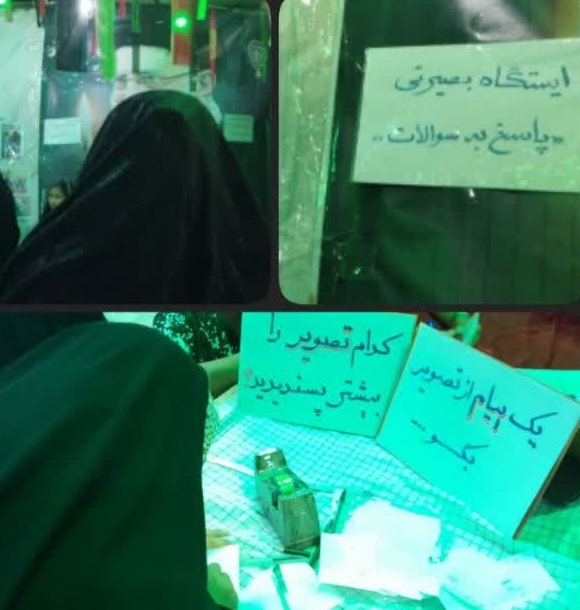 ایستگاه بصیرتی
«پاسخ به سوالات..
کدام تصویر را
بیشتر پسندیدید؟
یک پیام از تصویر
بگو...